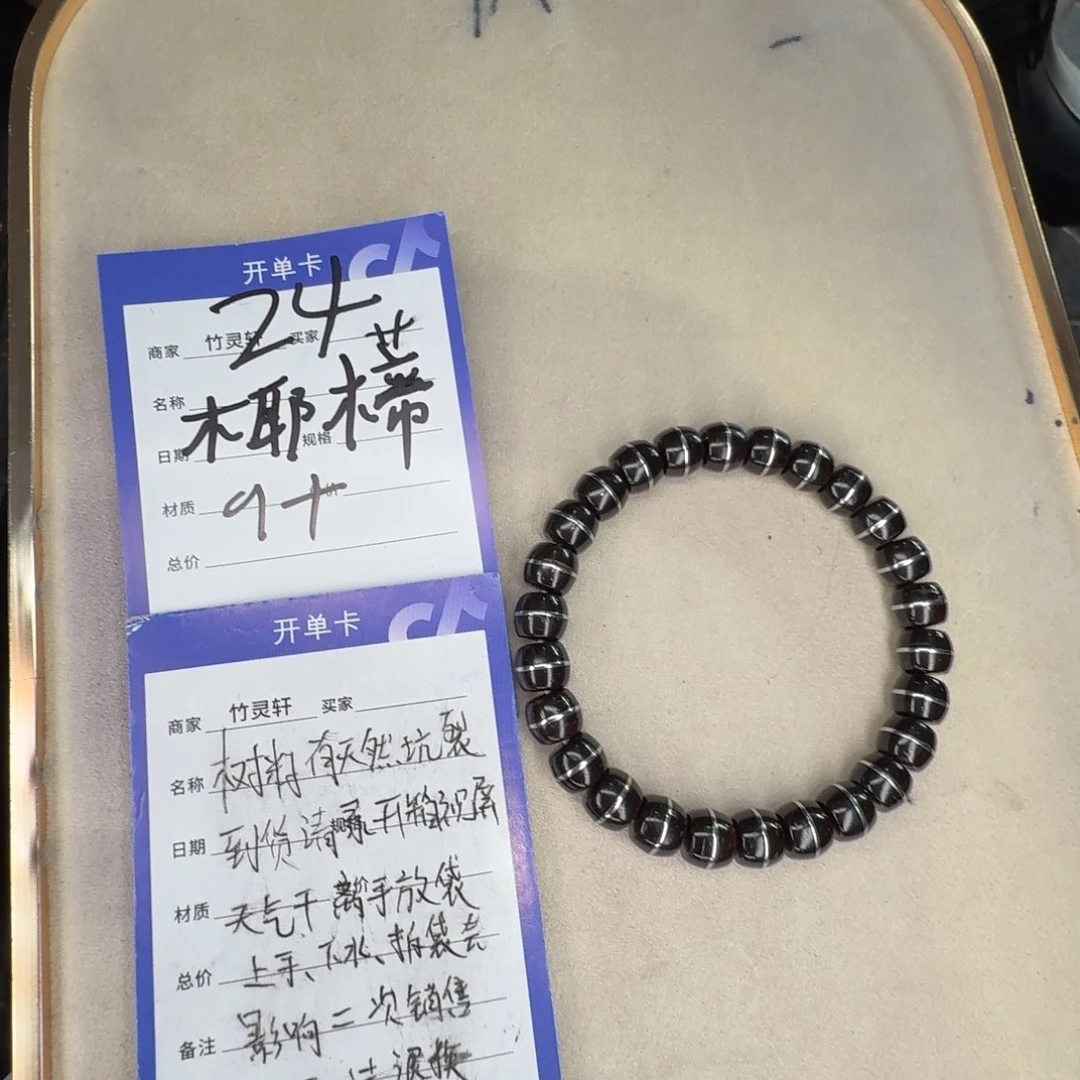 开单卡
24
商家 竹灵轩 买家
名称 椰蒂
日期 规格
材质 9+
总价
开单卡
商家 竹灵轩 买家
名称 材料有天然坑裂
日期 到货请录开箱视屏
材质 天气干离手放袋
总价 上手、下水、拆袋去
备注 影响二次销售
退换